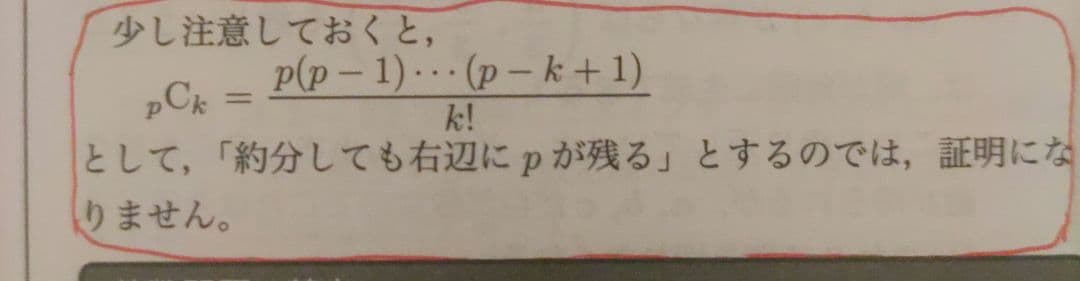 少し注意しておくと,
pCk = p(p − 1)···(p − k + 1) / k!
として,「約分しても右辺に p が残る」とするのでは, 証明にな
りません。